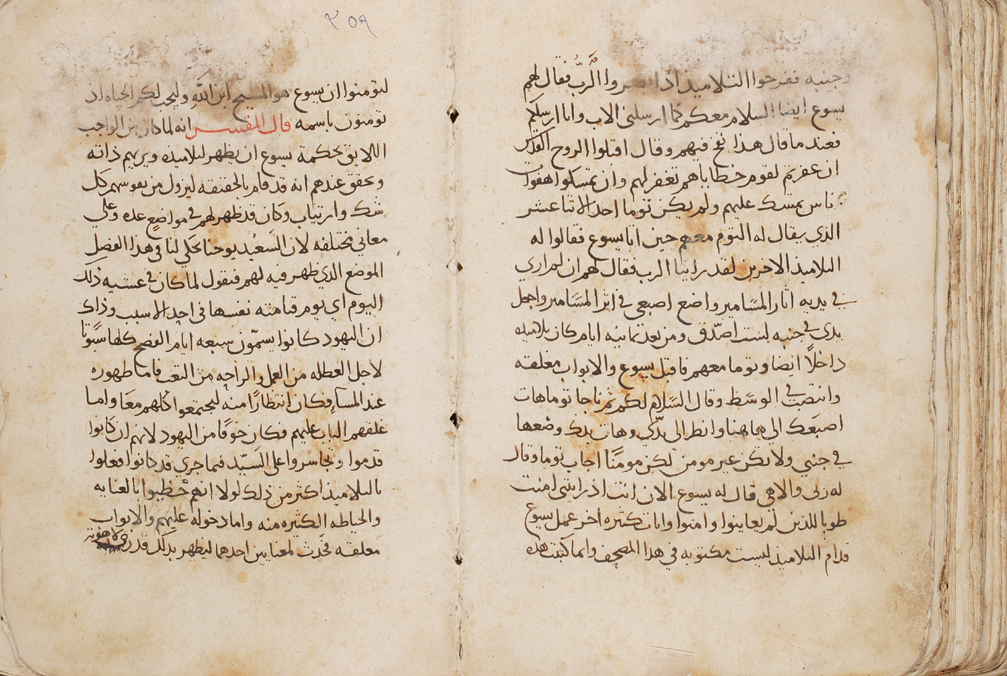 وجنبه ففرحوا التلاميد اذا ابصروا الرب فقال لهم
يسوع ايضا السلام معكم كما ارسلني الاب وانا ارسلكم
فعند ما قال هذا نفخ فيهم وقال اقبلوا الروح القدس
ان غفرتم لقوم خطاياهم تغفر لهم وان تمسكوا هفوات
ناس يمسك عليهم ولم يكن توما احد الاثنا عشر
الذي يقال له التوم معهم حين اتا يسوع فقالوا له
التلاميذ الاخرين لقد راينا الرب فقال لهم ان لم اري
في يديه اثار المسامير واضع اصبعي في اثر المسامير واجعل
يدي في جنبه لست اصدق ومن بعد ثمانيه ايام كان تلاميذه
داخلا ايضا وتوما معهم فاقبل يسوع والابواب مغلقه
وانتصب في الوسط وقال السلام لكم ثم ناجا توما هات
اصبعك الي هاهنا وانظر الي يدي وهات يدك وضعها
في جنبي ولا تكن غير مومن لكن مومنا اجاب توما وقال
له ربي والاهي قال له يسوع الان انت اذ رايتني امنت
طوبا للذين لم يعاينوا وامنوا وايات كثيره اخر عمل يسوع
قدام التلاميذ ليست مكتوبه في هذا المصحف وانما كتبت هذه
٢٥٩
لتؤمنوا ان يسوع هو المسيح ابن الله وليجب لكم الحياه اذ
تومنون باسمه قال المفسر انه لما كان من الواجب
اللايق بحكمة يسوع ان يظهر لتلاميذه ويريهم ذاته
ويحقق عندهم انه قد قام بالحقيقه ليزول من نفوسهم كل
شك وارتياب وكان قد ظهر لهم في مواضع عده وعلي
معاني مختلفه لان السعيد يوحنا يحكي لنا في هذا الفصل
الموضع الذي ظهر فيه لهم فيقول لما كان في عشيه ذلك
اليوم اي يوم قيامته نفسها في احد السبت وذاك
ان اليهود كانوا يسمون سبعه ايام الفصح كلها سبوتا
لاجل العطله من العمل والراحه من التعب فاما ظهوره
عند المسا فكان انتظارا منه ليجتمعوا كلهم معا واما
غلقهم الباب عليهم فكان خوفا من اليهود لانهم ان كانوا
قدموا وتجاسروا علي السيد فيما جري قد كانوا فعلوا
بالتلاميذ اكثر من ذلك لولا انهم حظيوا بالعنايه
والحياطه الكثيره منه واما دخوله عليهم والابواب
مغلقه فحدث لمعنايين احدهما ليظهر بذلك قدره لاهوته